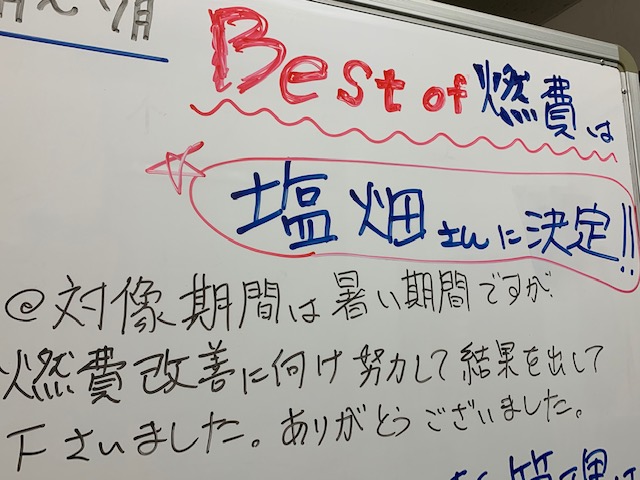 Best of 燃費は
塩畑さんに決定!!
@対像期間は暑い期間ですが、
燃費改善に何け努力して結果を出して
下さいました。ありがとうございました。